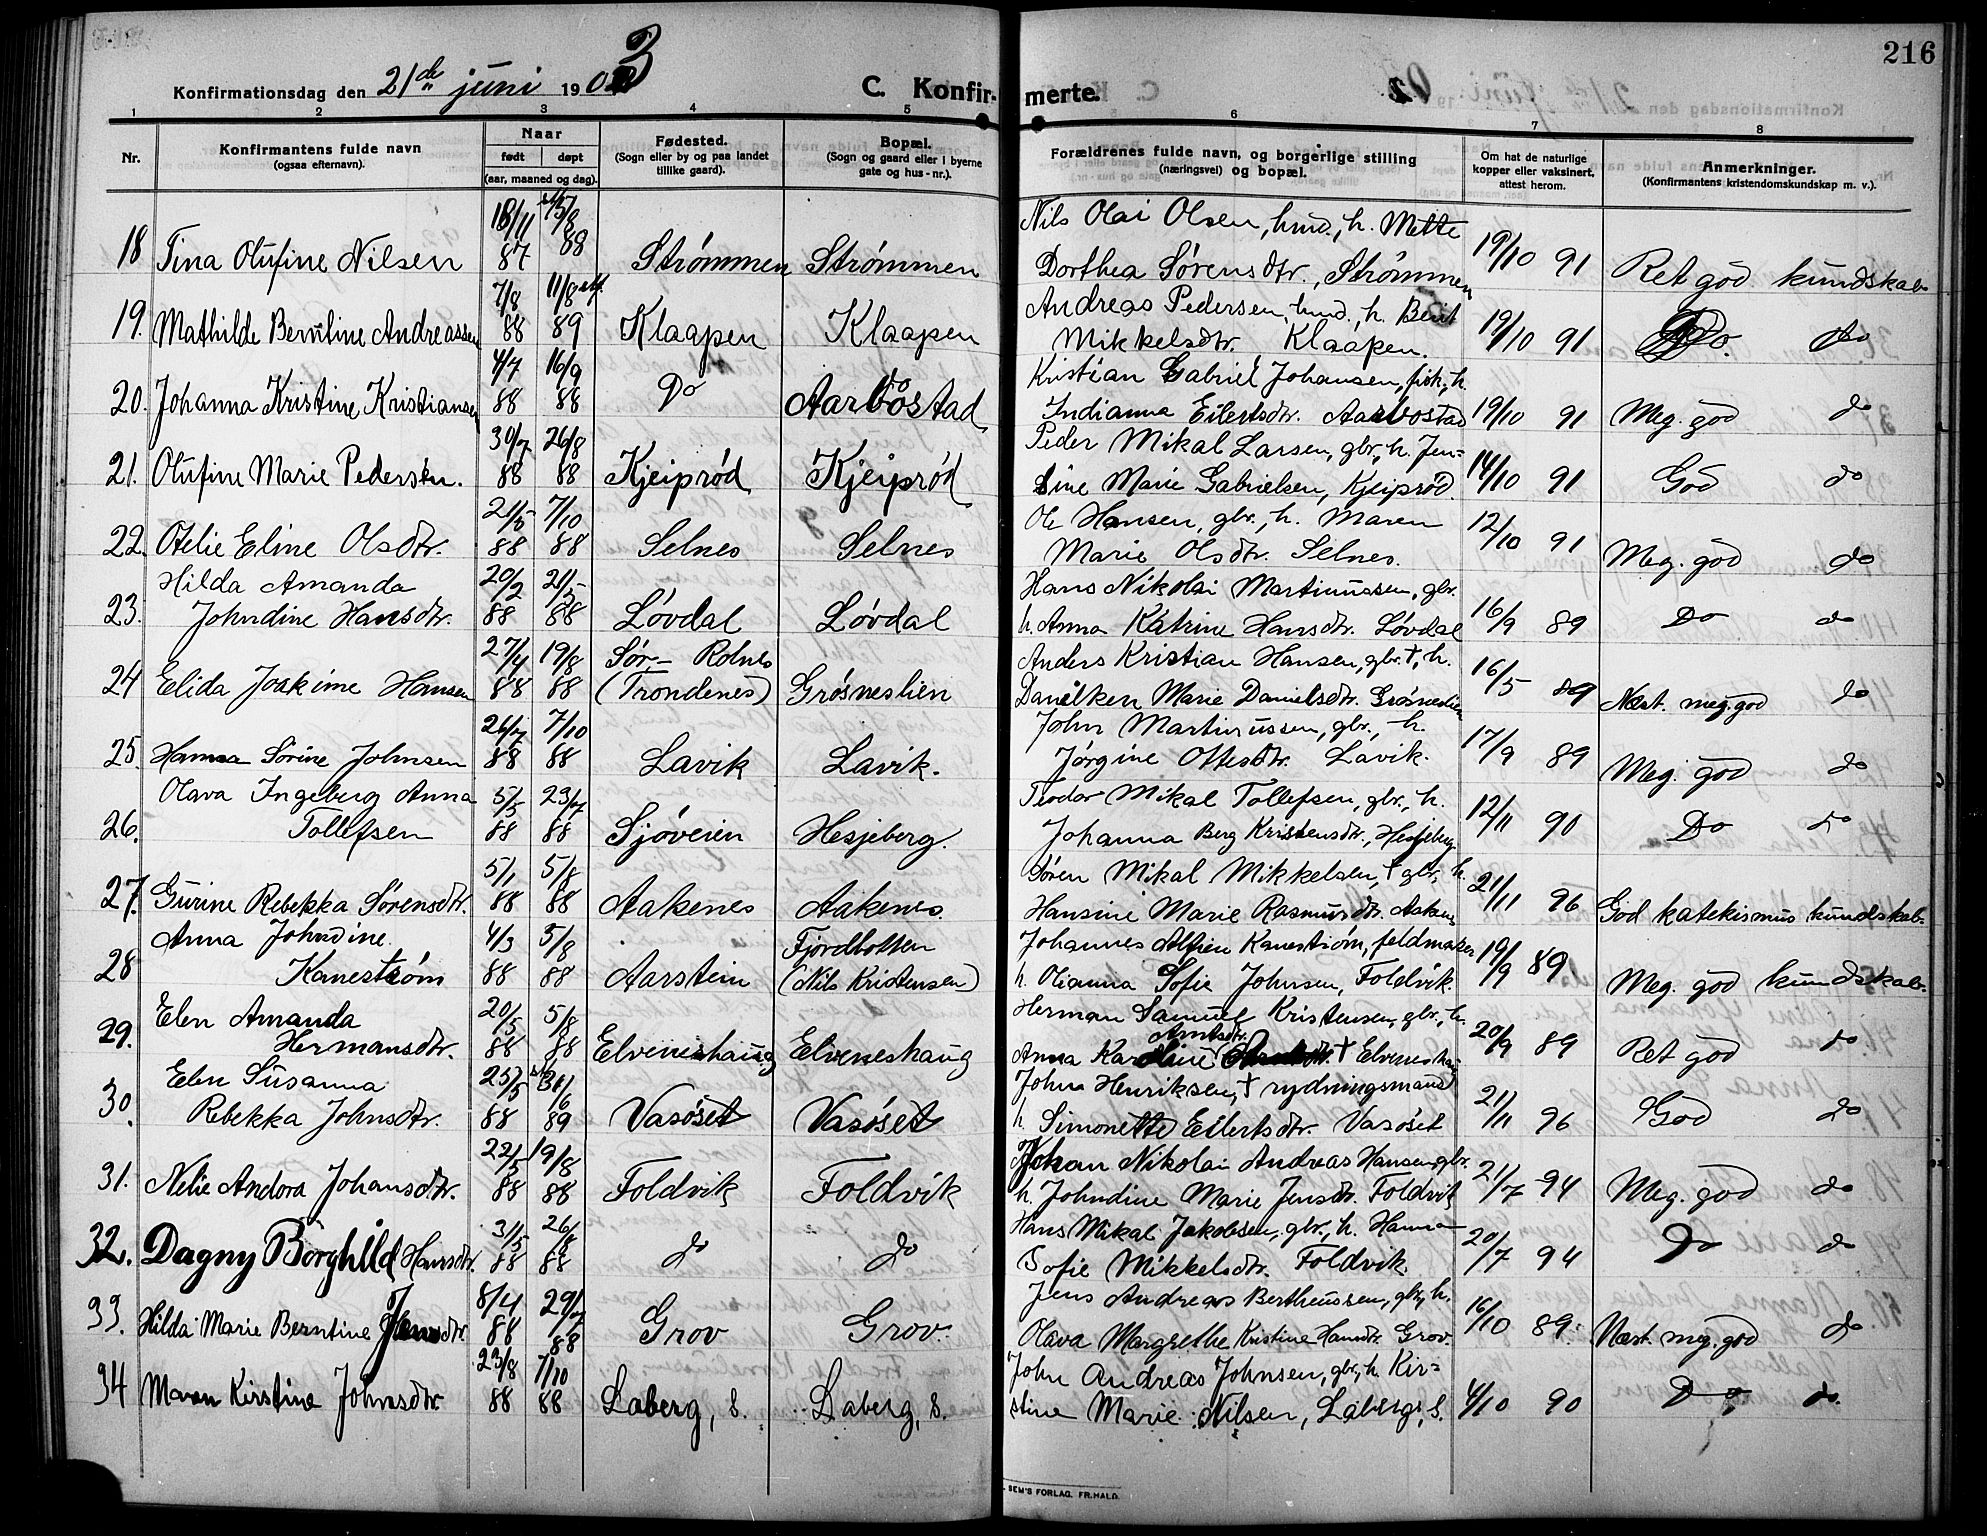 216
Konfirmationsdag den 21de juni 1903
C. Konfirmerte.
1 2 3 4 5 6 7 8
Nr. Konfirmantens fulde navn (ogsaa efternavn). Naar født døpt (aar, maaned og dag). Fødested. (Sogn eller by og paa landet tillike gaard). Bopæl. (Sogn og gaard eller i byerne gate og hus-nr.). Forældrenes fulde navn, og borgerlige stilling (næringsvei) og bopæl. Om hat de naturlige kopper eller vaksinert, attest herom. Anmerkninger. (Konfirmantens kristendomskundskap m. v.).
18/11 15/8 Nils Olai Olsen, hmd., h. Mette
18 Tina Olufine Nilsen 87 88 Strømmen Strømmen Dorthea Sørensdtr., Strømmen 19/10 91 Ret god kundskab
7/8 11/8 Andreas Pedersen, hmd., h. Berit
19. Mathilde Berntine Andreassen 88 89 Klaapen Klaapen Mikkelsdtr. Klaapen. 19/10 91 Do. do
4/7 16/9 Kristian Gabriel Johansen, fisk., h.
20. Johanna Kristine Kristiansen 88 88 Do Aarbostad Indianna Eilertsdtr. Aarbostad 19/10 91 Meg. god do
30/7 26/8 Peder Mikal Larsen, gbr., h. Jen-
21. Olufine Marie Pedersen. 88 88 Kjeiprød Kjeiprød sine Marie Gabrielsen, Kjeiprød. 14/10 91 God do
21/5 7/10 Ole Hansen, gbr., h. Maren
22. Otelie Eline Olsdtr. 88 88 Selnes Selnes Marie Olsdtr. Selnes. 12/10 91 Meg. god do
Hilda Amanda 20/2 21/5 Hans Nikolai Martinussen, gbr.
23. Johndine Hansdtr. 88 88 Løvdal Løvdal h. Anna Katrine Hansdtr. Løvdal 16/9 89 Do do
27/4 19/8 Sør-Rolnes Anders Kristian Hansen, gbr. †, h.
24 Elida Joakime Hansen 88 88 (Trondenes) Grøsneslien Danilken Marie Danielsdtr. Grøsneslien 16/5 89 Næst. meg. god do
26/7 7/10 John Martinussen, gbr., h.
25. Hanna Sørine Johnsen 88 88 Lavik Lavik. Jørgine Ottesdtr. Lavik. 17/9 89 Meg. god do
Olava Ingeberg Anna 5/5 23/7 Teodor Mikal Tollefsen, gbr., h.
26. Tollefsen 88 88 Sjøveien Hesjeberg. Johanna Berg Kristensdtr., Hesjeberg. 12/11 90 Do do
5/1 5/8 Søren Mikal Mikkelsen, † gbr., h.
27. Gurine Rebekka Sørensdtr. 88 88 Aakenes Aakenes. Hansine Marie Rasmusdtr. Aakenes 21/11 96 God katekismus kundskab.
Anna Johndine 4/3 5/8 Fjordbotten Johannes Kanestrøm, feldmaker
28 Kanestrøm 88 88 Aarstein (Nils Kristensen) h. Olianna Sofie Johnsen, Foldvik. 19/9 89. Meg. god kundskab.
Elen Amanda 20/5 5/8 Herman Samuel Kristensen, gbr., h.
29. Hermansdtr. 88 88 Elveneshaug Elveneshaug Anna Karoline Arntsdtr. † Elveneshaug 20/9 89 Ret god do
Elen Susanna 23/5 31/6 John Henriksen, † rydningsmand
30. Rebekka Johnsdtr. 88 89 Vasøset Vasøset h. Simonette Eilertsdtr. Vasøset 21/11 96 God do
22/5 19/8 Johan Nikolai Andreas Hansen, gbr.
31. Nelie Andora Johansdtr. 88 88 Foldvik Foldvik h. Johndine Marie Jensdtr. Foldvik 21/7 94 Meg. god do
31/5 26/8 Hans Mikal Jakobsen, gbr., h. Hanna
32. Dagny Borghild Hansdtr. 88 88 do do Sofie Mikkelsdtr. Foldvik. 20/7 94 Do do
8/4 29/7 Jens Andreas Bertheussen, gbr, h.
33. Hilda Marie Berntine Jensdtr. 88 88 Grov Grov. Olava Margrethe Kristine Hansdtr. Grov. 16/10 89. Næst. meg. god do
23/8 7/10 John Andreas Johnsen, gbr, h. Kir-
34 Maren Kirstine Johnsdtr. 88 88 Laberg, S. Laberg, S. stine Marie Nilsen, Laberg, S. 4/10 90 Do do.
SEM'S FORLAG. FR. HALD.